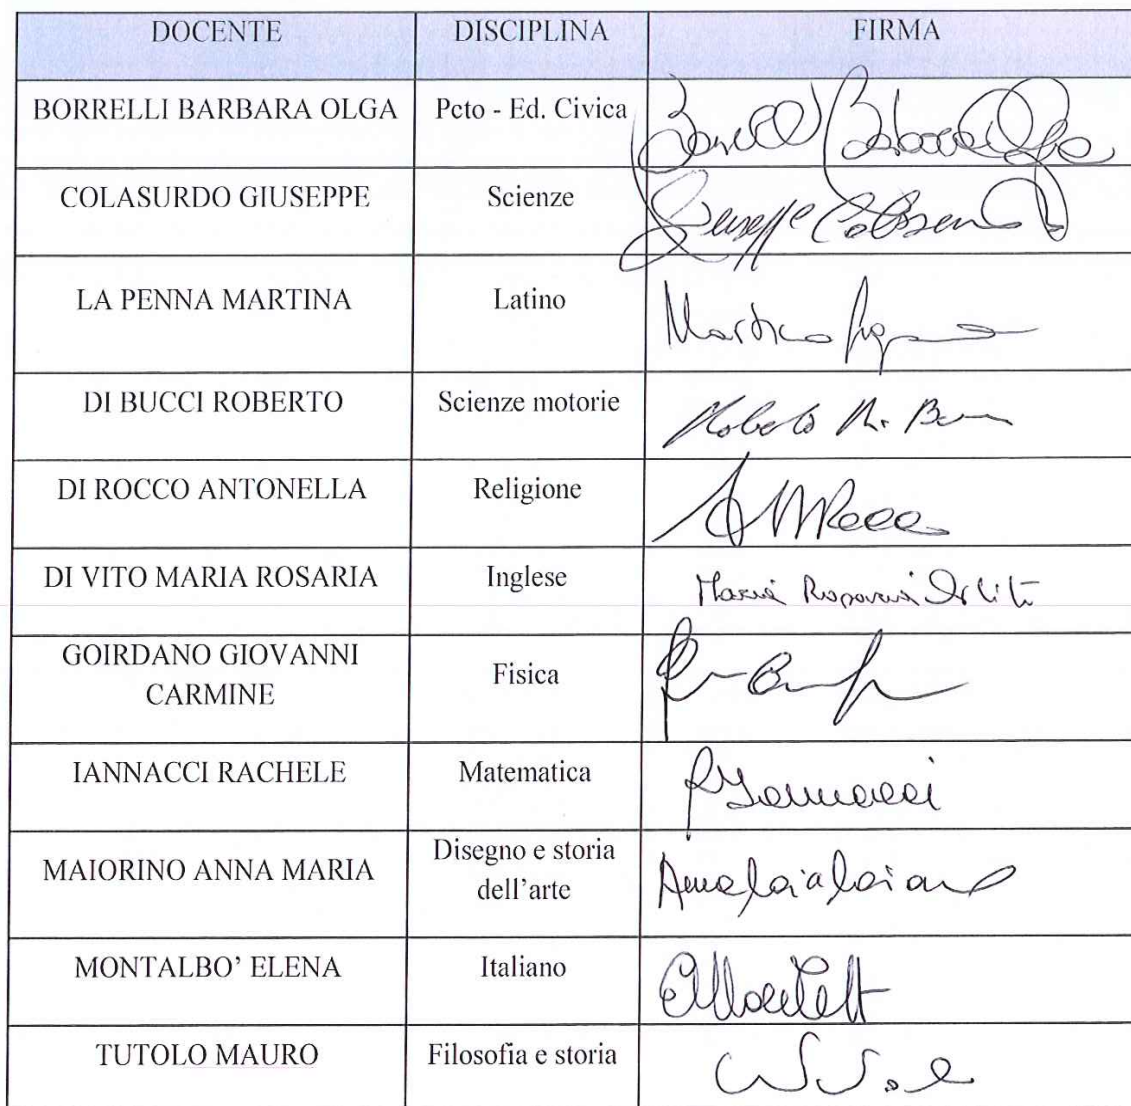 DOCENTE DISCIPLINA FIRMA
BORRELLI BARBARA OLGA Pcto - Ed. Civica
COLASURDO GIUSEPPE Scienze Giuseppe
LA PENNA MARTINA Latino Martina
DI BUCCI ROBERTO Scienze motorie Roberto
DI ROCCO ANTONELLA Religione
DI VITO MARIA ROSARIA Inglese Maria Rosaria Di Vito
GOIRDANO GIOVANNI
CARMINE Fisica
IANNACCI RACHELE Matematica Iannacci
MAIORINO ANNA MARIA Disegno e storia
dell’arte
MONTALBO’ ELENA Italiano
TUTOLO MAURO Filosofia e storia